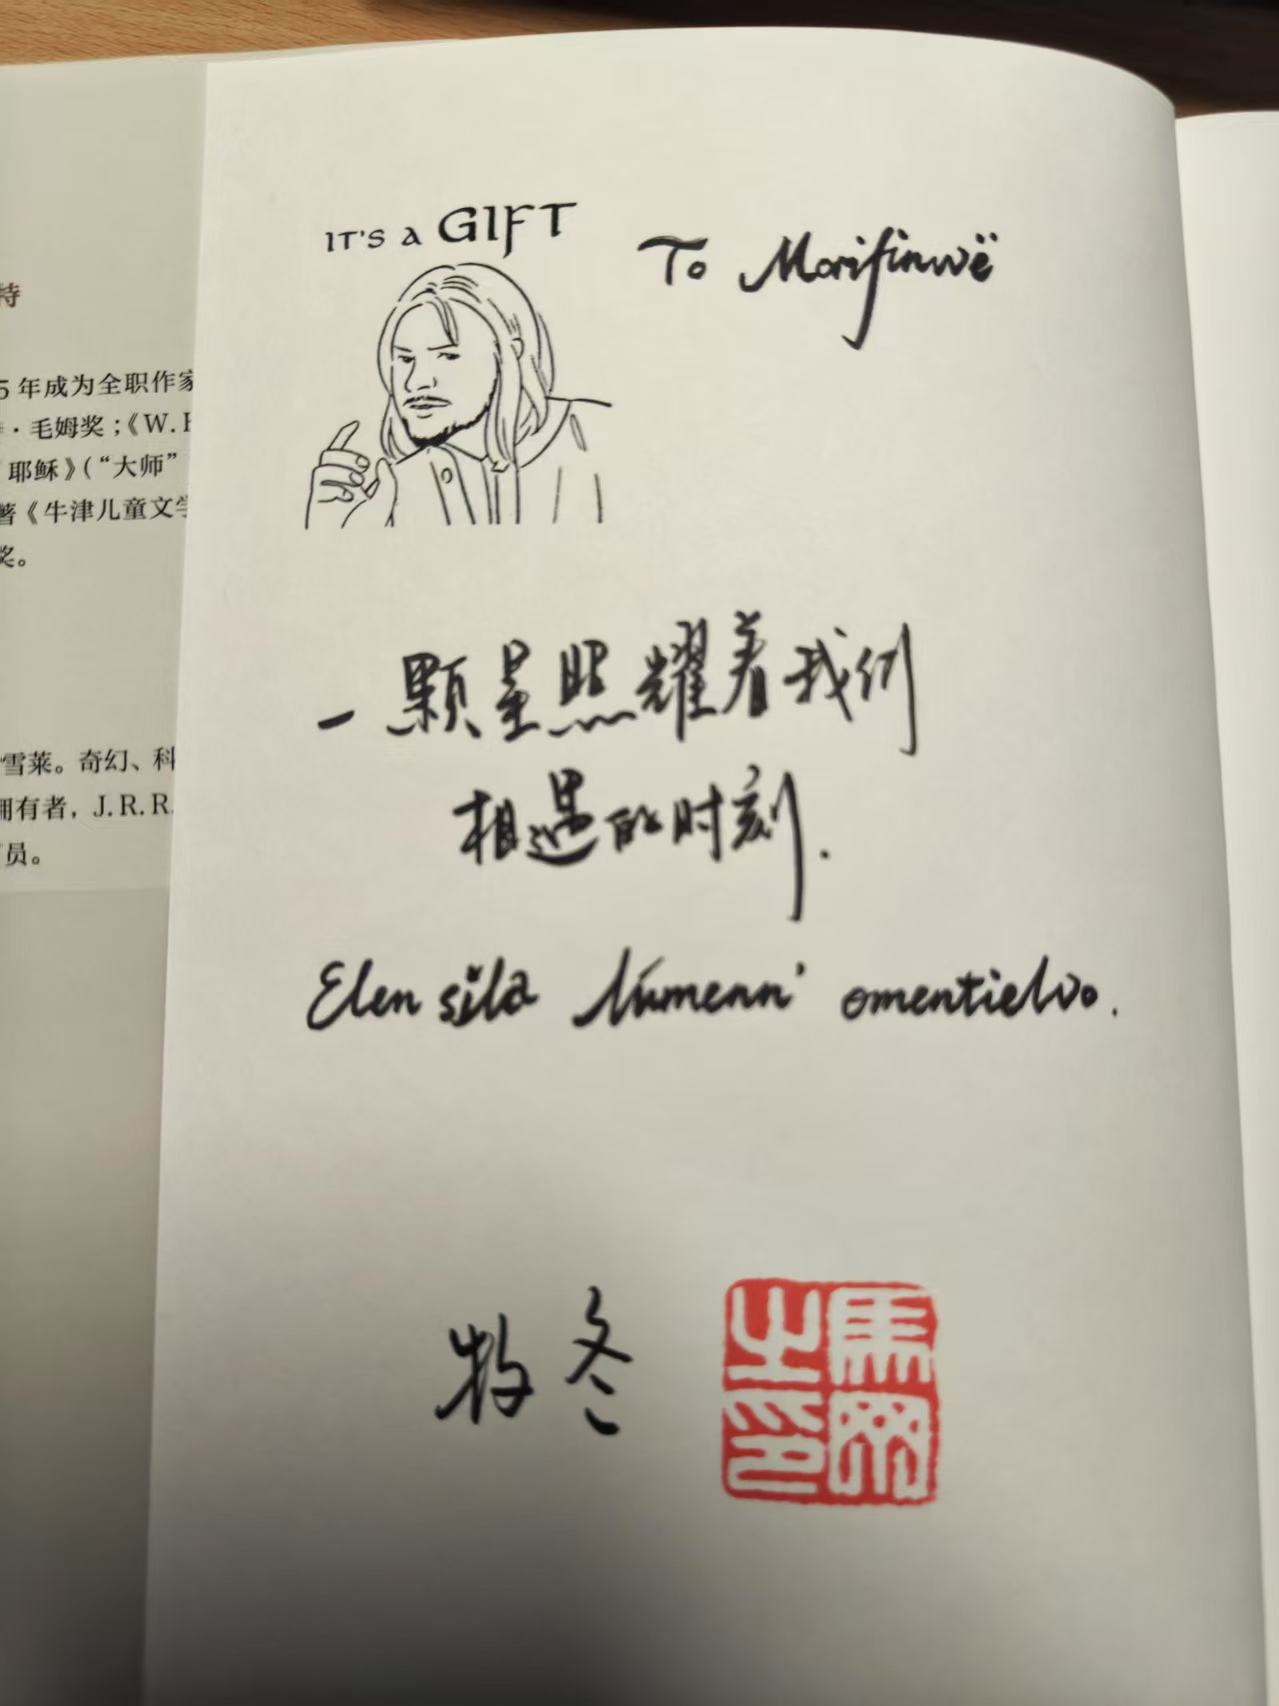 特
5年成为全职作家
·毛姆奖；《W.H
耶稣》（“大师”
著《牛津儿童文学
奖。
雪莱。奇幻、科
拥有者，J.R.R.
员。
IT'S A GIFT
To Morifinwë
一颗星照耀着我们
相遇的时刻.
Elen síla lúmenn' omentielvo.
牧冬
馬
之印